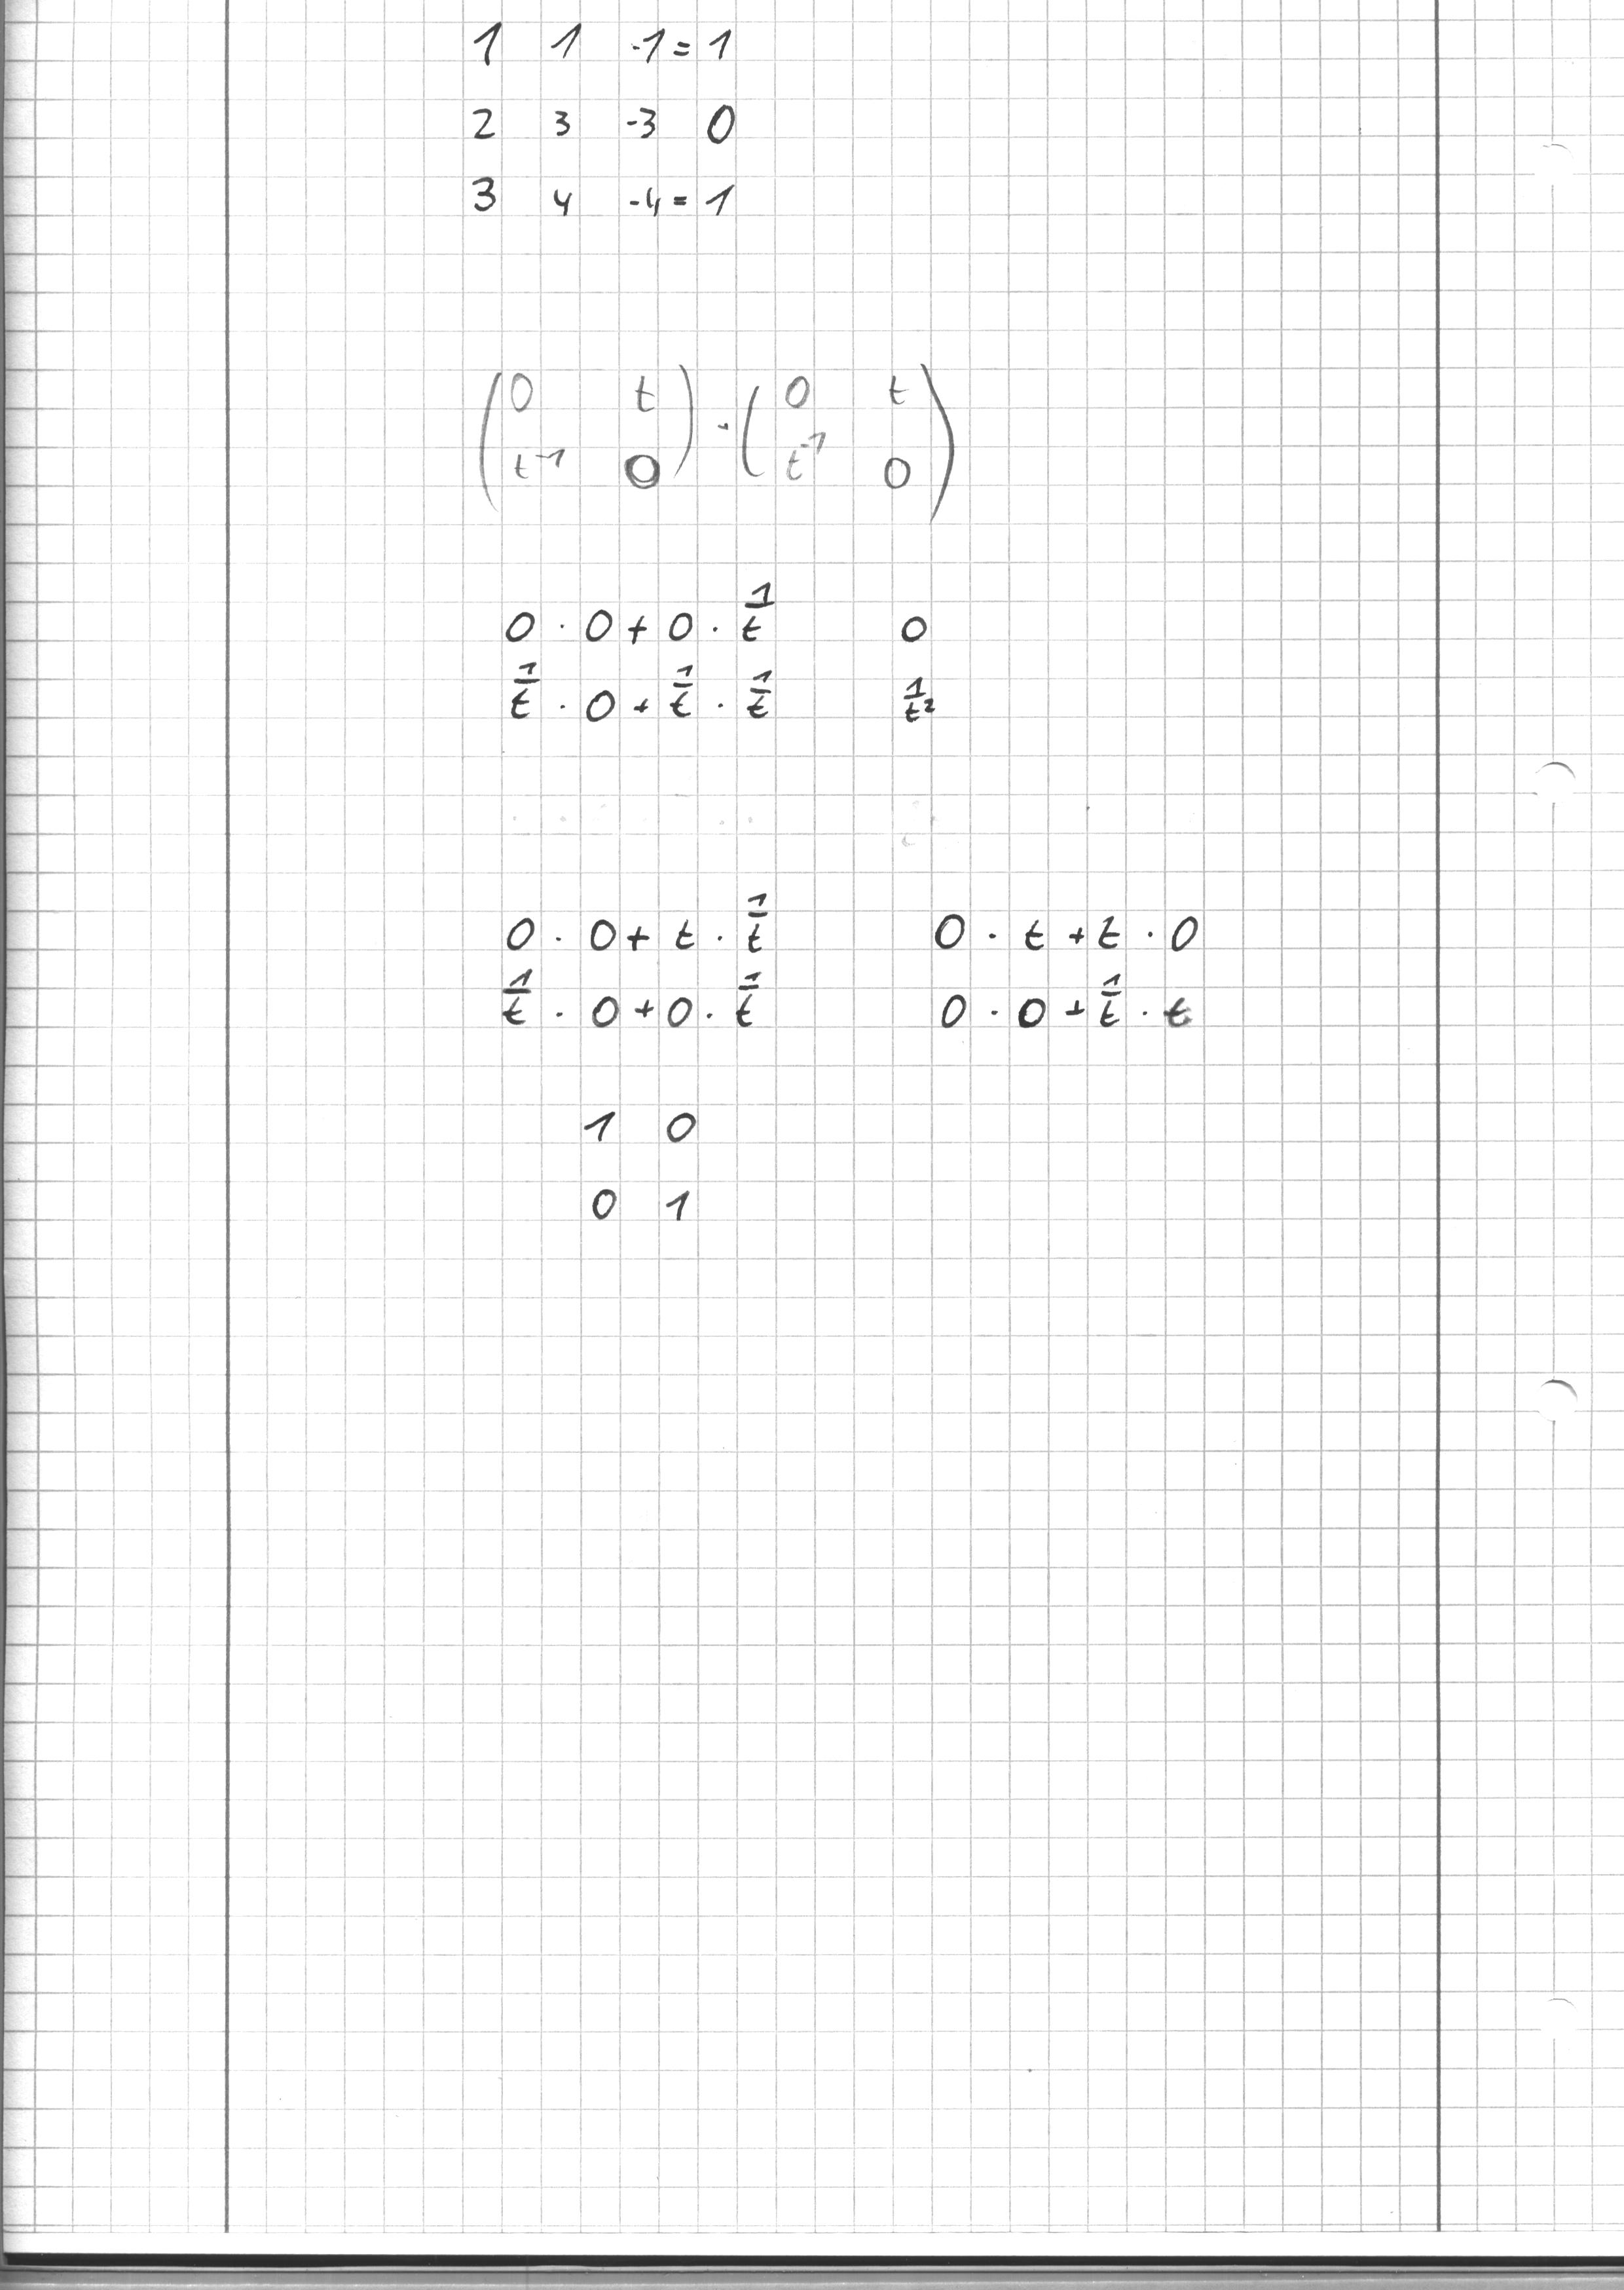 1 1 -1 = 1
2 3 -3 0
3 4 -4 = 1
(0 t) · (0 t)
(t⁻¹ 0) (t⁻¹ 0)
0 · 0 + 0 · 1/t 0
1/t · 0 + 1/t · 1/t 1/t²
0 · 0 + t · 1/t 0 · t + t · 0
1/t · 0 + 0 · 1/t 0 · 0 + 1/t · t
1 0
0 1